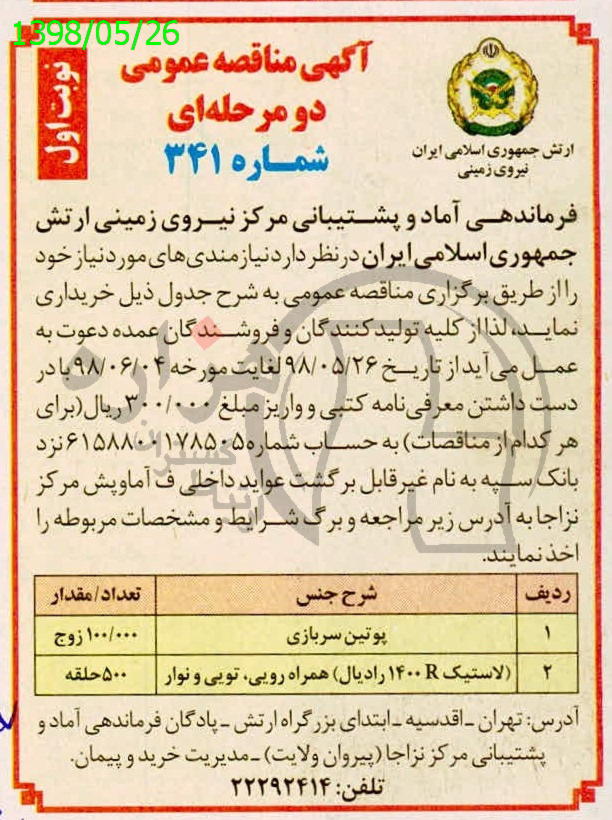 1398/05/26
آگهی مناقصه عمومی
دو مرحله‌ای
شماره ۳۴۱
نوبت اول
ارتش جمهوری اسلامی ایران
نیروی زمینی
فرماندهی آماد و پشتیبانی مرکز نیروی زمینی ارتش
جمهوری اسلامی ایران در نظر دارد نیازمندی‌های مورد نیاز خود
را از طریق برگزاری مناقصه عمومی به شرح جدول ذیل خریداری
نماید، لذا از کلیه تولیدکنندگان و فروشندگان عمده دعوت به
عمل می‌آید از تاریخ ۹۸/۰۵/۲۶ لغایت مورخه ۹۸/۰۶/۰۴ با در
دست داشتن معرفی‌نامه کتبی و واریز مبلغ ۳۰۰/۰۰۰ ریال (برای
هر کدام از مناقصات) به حساب شماره ۶۱۵۸۸۰۰۱۷۸۵۰۵ نزد
بانک سپه به نام غیرقابل برگشت عواید داخلی ف آماوپش مرکز
نزاجا به آدرس زیر مراجعه و برگ شرایط و مشخصات مربوطه را
اخذ نمایند.
ردیف شرح جنس تعداد/مقدار
۱ پوتین سربازی ۱۰۰/۰۰۰ زوج
۲ (لاستیک R ۱۴۰۰ رادیال) همراه رویی، تویی و نوار ۵۰۰ حلقه
آدرس: تهران ـ اقدسیه ـ ابتدای بزرگراه ارتش ـ پادگان فرماندهی آماد و
پشتیبانی مرکز نزاجا (پیروان ولایت) ـ مدیریت خرید و پیمان.
تلفن: ۲۲۲۹۲۴۱۴